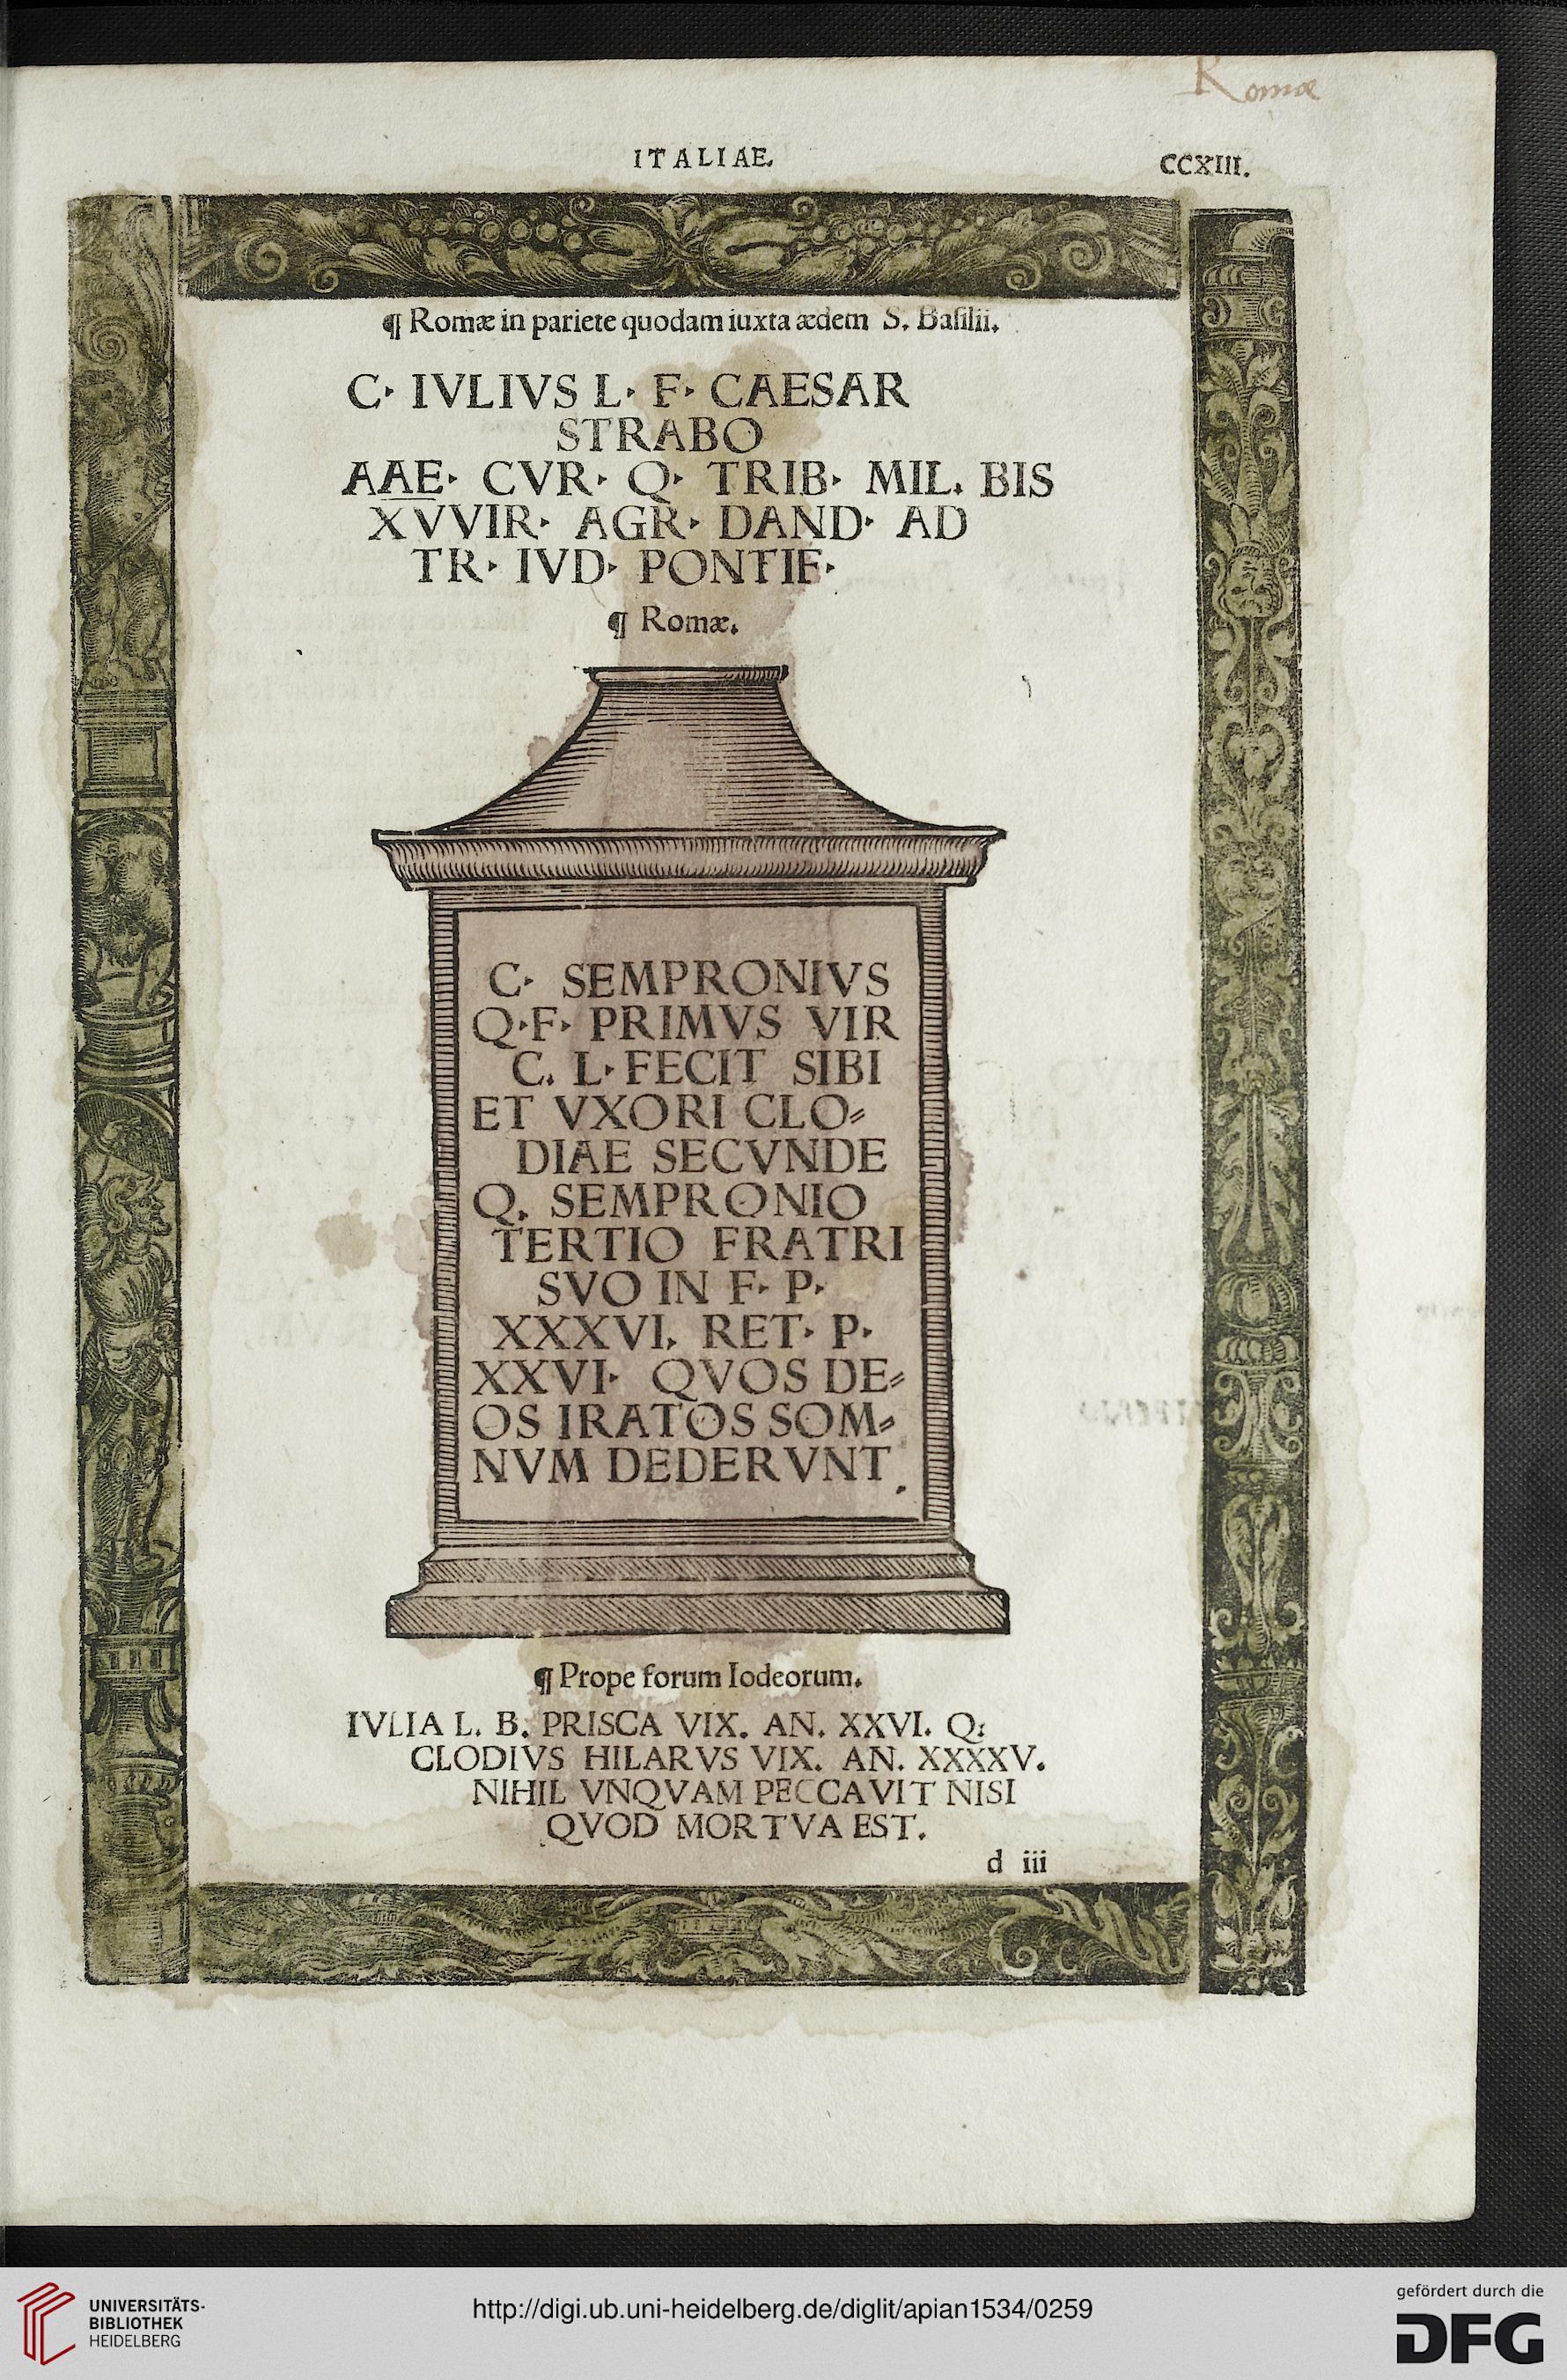 Romæ
ITALIAE.
CCXIII.
¶ Romæ in pariete quodam iuxta ædem S. Basilii.
C· IVLIVS L· F· CAESAR
STRABO
AAE· CVR· Q· TRIB· MIL. BIS
XVVIR· AGR· DAND· AD
TR· IVD· PONTIF·
¶ Romæ.
C· SEMPRONIVS
Q·F· PRIMVS VIR
C. L· FECIT SIBI
ET VXORI CLO⸗
DIAE SECVNDE
Q. SEMPRONIO
TERTIO FRATRI
SVO IN F· P·
XXXVI. RET· P·
XXVI· QVOS DE⸗
OS IRATOS SOM⸗
NVM DEDERVNT.
¶ Prope forum Iodeorum.
IVLIA L. B. PRISCA VIX. AN. XXVI. Q:
CLODIVS HILARVS VIX. AN. XXXXV.
NIHIL VNQVAM PECCAVIT NISI
QVOD MORTVA EST.
d iii
UNIVERSITÄTS-
BIBLIOTHEK
HEIDELBERG
http://digi.ub.uni-heidelberg.de/diglit/apian1534/0259
gefördert durch die
DFG